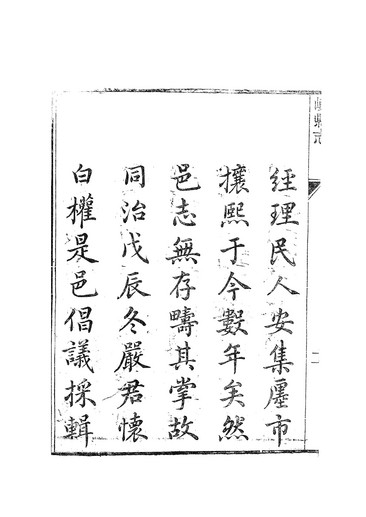 經理民人安集廛市
攘熙于今數年矣然
邑志無存疇其掌故
同治戊辰冬嚴君懷
白權是邑倡議採輯